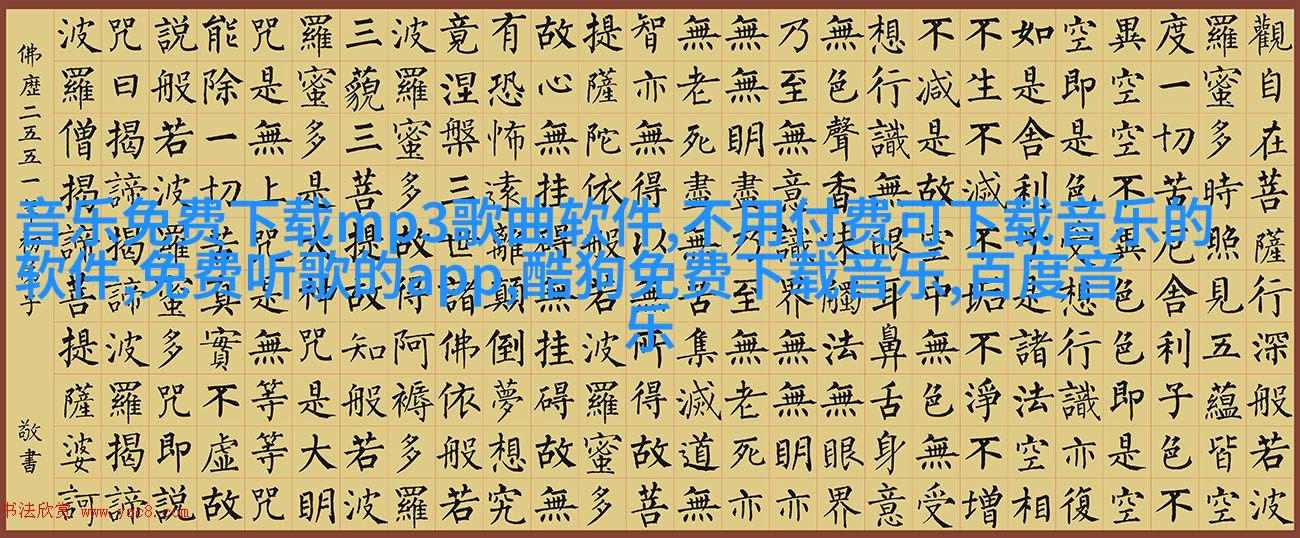 觀自在菩薩行深般若波
羅蜜多時照見五蘊皆空
度一切苦厄舍利子色不
異空空不異色色即是空
空即是色受想行識亦復
如是舍利子是諸法空相
不生不滅不垢不淨不增
不減是故空中無色無受
想行識無眼耳鼻舌身意
無色聲香味觸法無眼界
乃至無意識界無無明亦
無無明盡乃至無老死亦
無老死盡無苦集滅道無
智亦無得以無所得故菩
提薩陀依般若波羅蜜多
故心無挂礙無挂礙故無
有恐怖遠離顛倒夢想究
竟涅槃三世諸佛依般若
波羅蜜多故得阿褥多羅
三藐三菩提故知般若波
羅蜜多是大神咒是大明
咒是無上咒是無等等咒
能除一切苦真實不虛故
說般若波羅蜜多咒即說
咒曰揭諦揭諦波羅揭諦
波羅僧揭諦菩提薩婆訶
佛歷二五五一 子 敬書
音乐免费下载mp3歌曲软件,不用付费可下载音乐的
软件,免费听歌的app,酷狗免费下载音乐,百度音
乐
书法欣赏 www.yac8.com